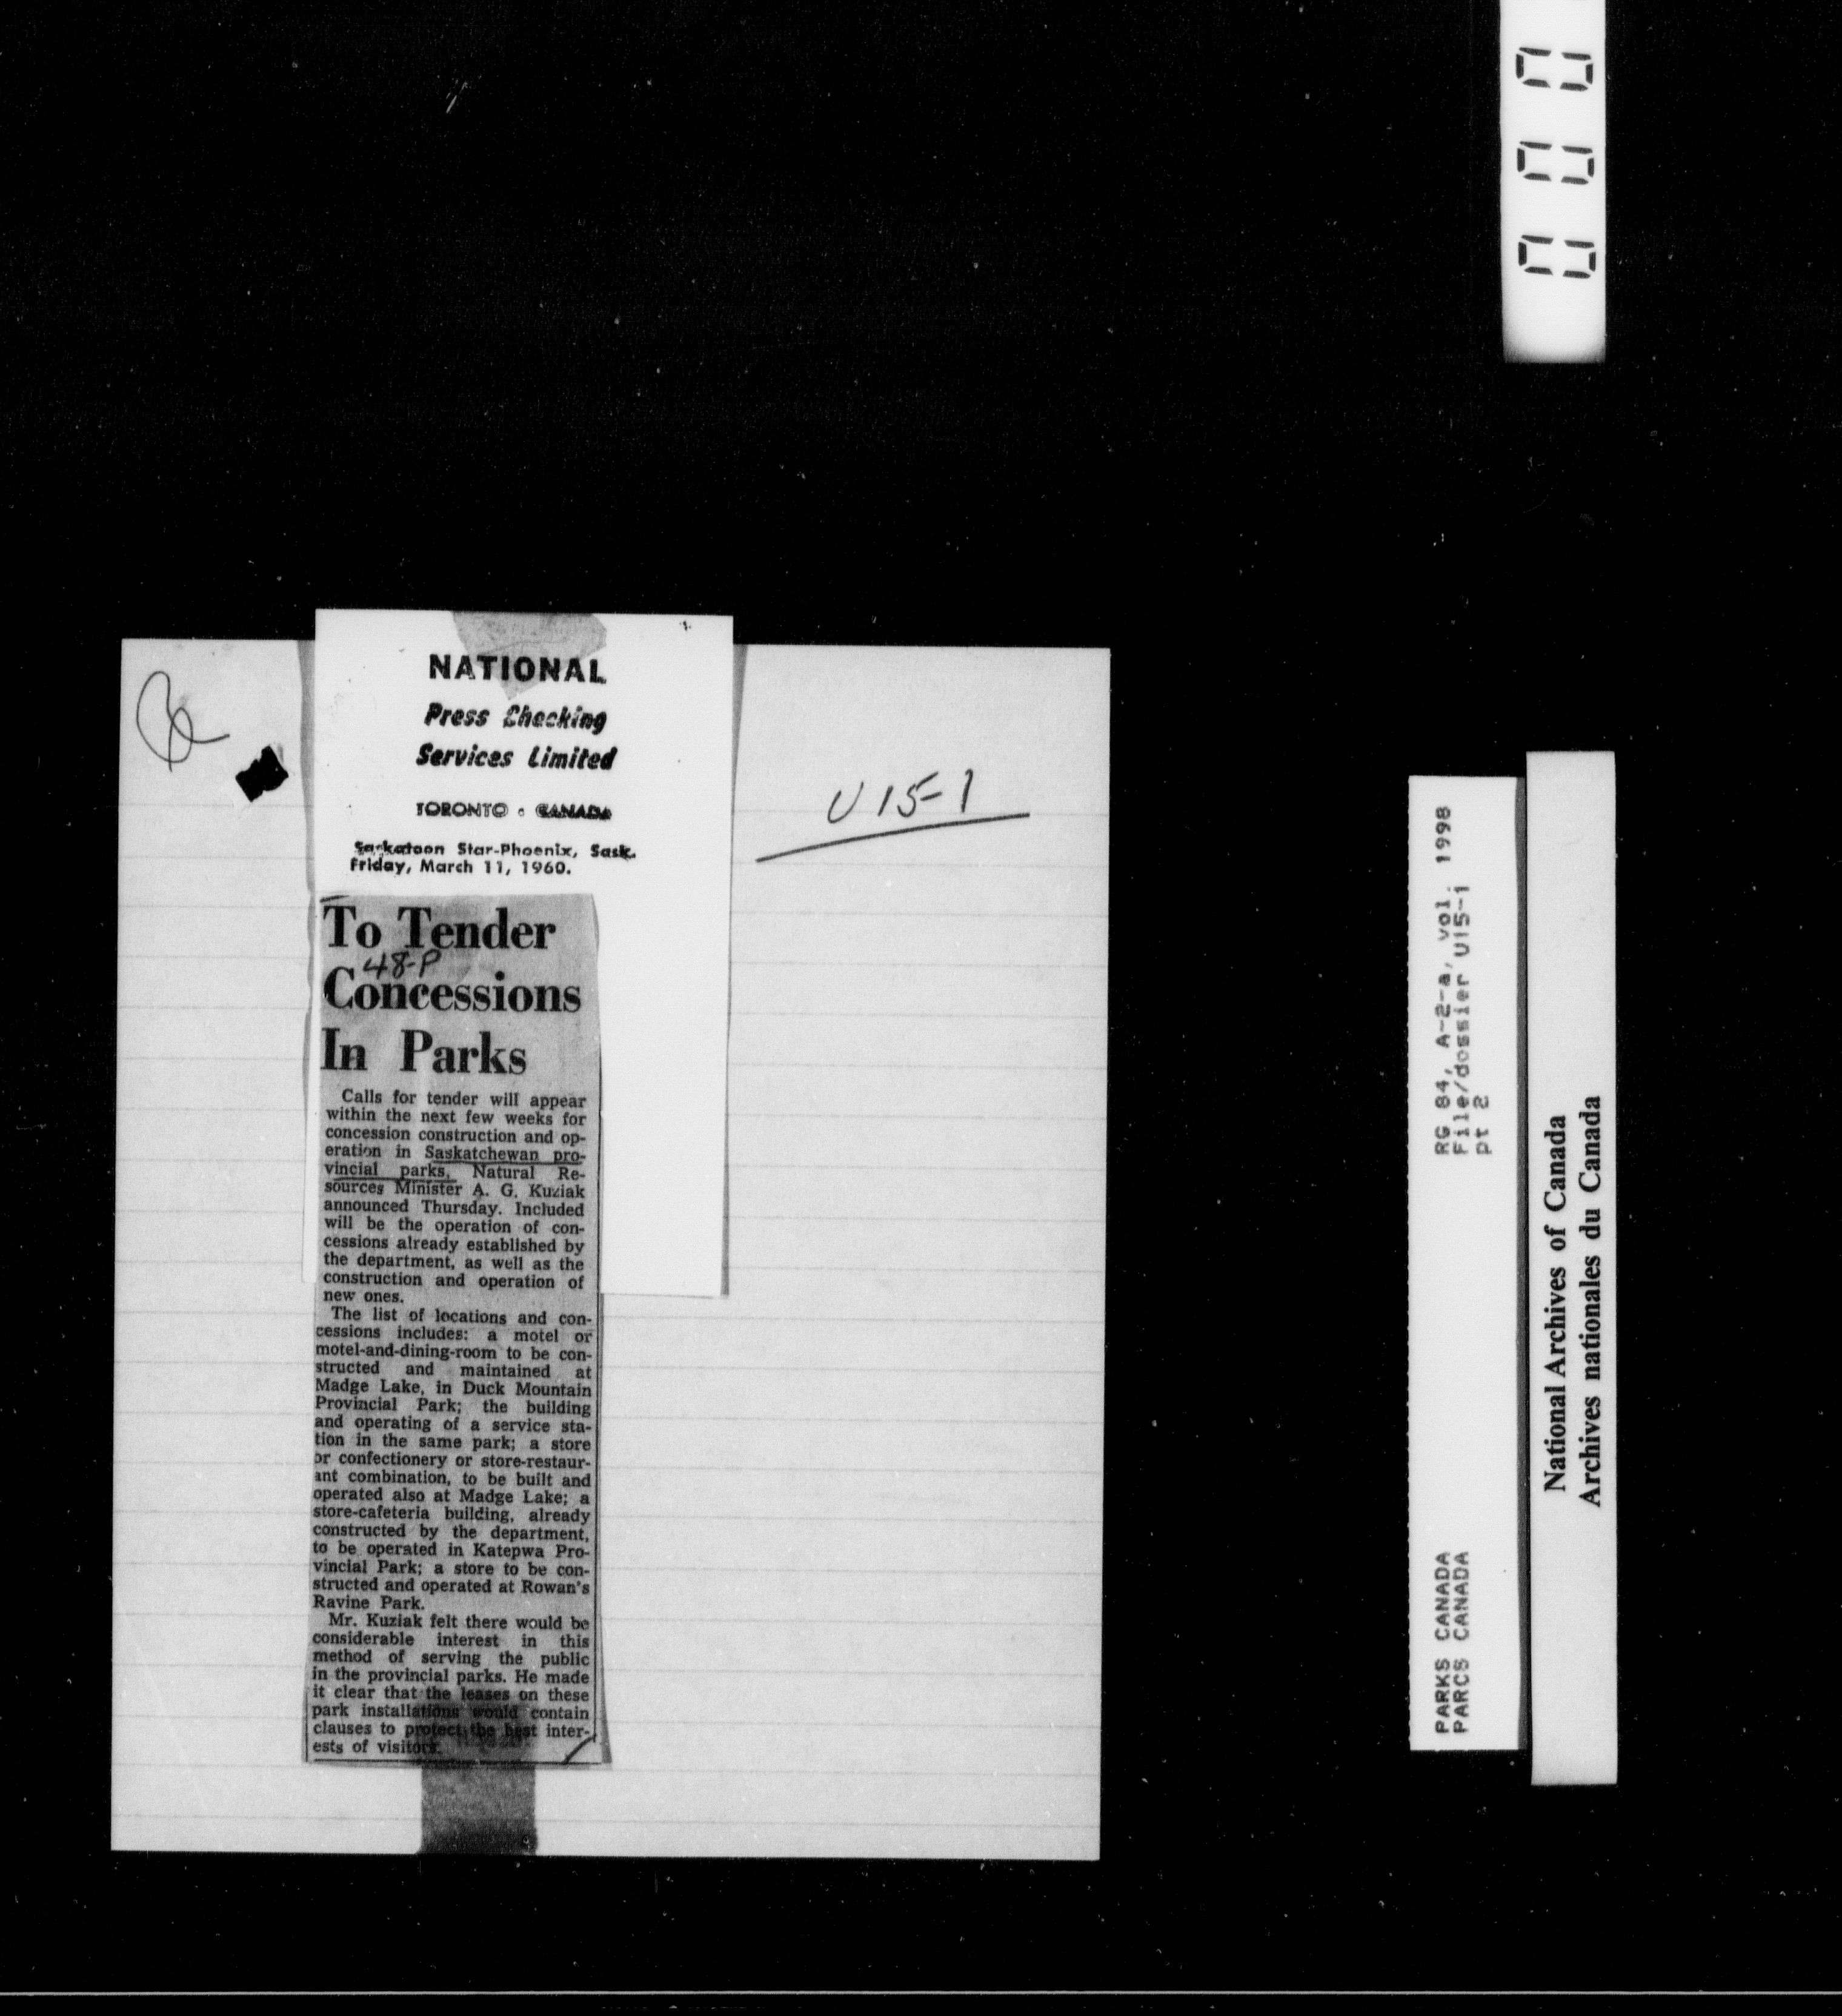 NATIONAL
Press Checking
Services Limited
TORONTO - CANADA
Saskatoon Star-Phoenix, Sask.
Friday, March 11, 1960.
U15-1
To Tender
48-P
Concessions
In Parks
Calls for tender will appear
within the next few weeks for
concession construction and op-
eration in Saskatchewan pro-
vincial parks, Natural Re-
sources Minister A. G. Kuziak
announced Thursday. Included
will be the operation of con-
cessions already established by
the department, as well as the
construction and operation of
new ones.
The list of locations and con-
cessions includes: a motel or
motel-and-dining-room to be con-
structed and maintained at
Madge Lake, in Duck Mountain
Provincial Park; the building
and operating of a service sta-
tion in the same park; a store
or confectionery or store-restaur-
ant combination, to be built and
operated also at Madge Lake; a
store-cafeteria building, already
constructed by the department,
to be operated in Katepwa Pro-
vincial Park; a store to be con-
structed and operated at Rowan's
Ravine Park.
Mr. Kuziak felt there would be
considerable interest in this
method of serving the public
in the provincial parks. He made
it clear that the leases on these
park installations would contain
clauses to protect the best inter-
ests of visitors.
000
PARKS CANADA RG 84, A-2-a, vol. 1998
PARCS CANADA File/dossier U15-1
pt 2
National Archives of Canada
Archives nationales du Canada